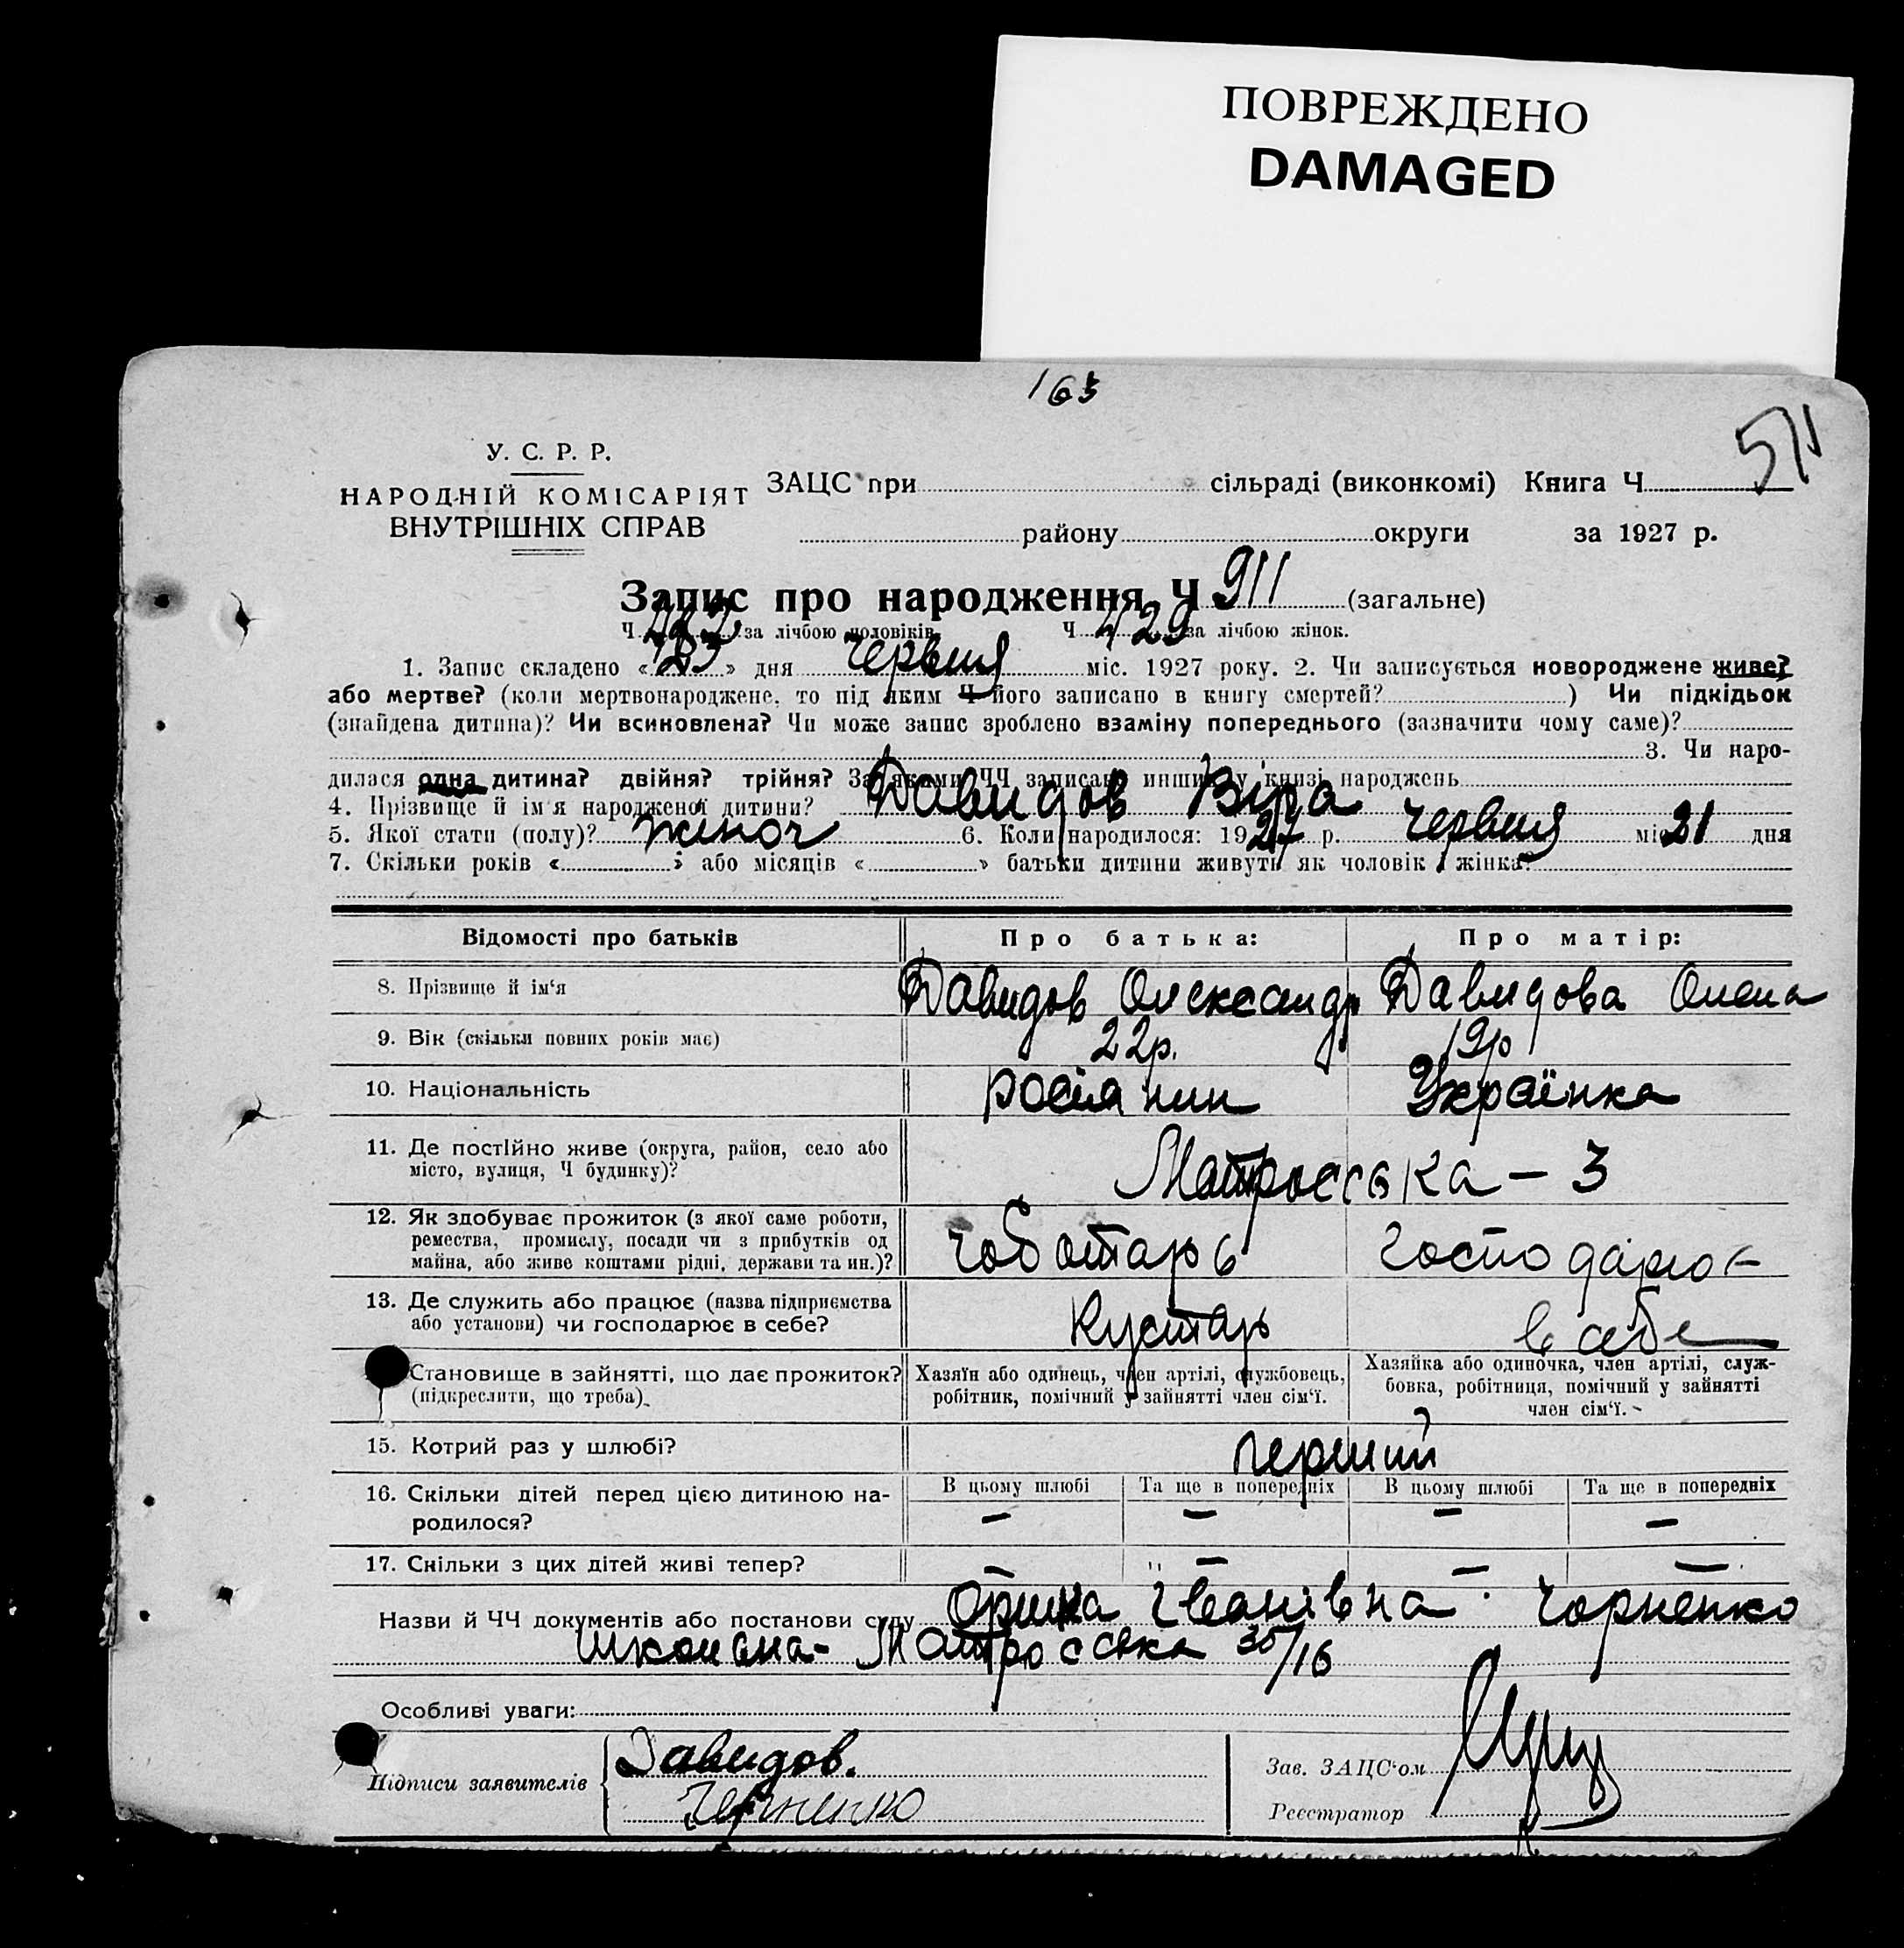 ПОВРЕЖДЕНО
DAMAGED
163
571
У. С. Р. Р.
НАРОДНІЙ КОМІСАРІЯТ
ВНУТРІШНІХ СПРАВ
ЗАЦС при сільраді (виконкомі) Книга Ч.
району округи за 1927 р.
Запис про народження Ч 911 (загальне)
Ч. за лічбою чоловіків. Ч 429 за лічбою жінок.
1. Запис складено « » дня червня міс. 1927 року. 2. Чи записується новороджене живе?
або мертве? (коли мертвонароджене, то під яким Ч його записано в книгу смертей? ) Чи підкідьок
(знайдена дитина)? Чи всиновлена? Чи може запис зроблено взаміну попереднього (зазначити чому саме)?
3. Чи наро-
дилася одна дитина? двійня? трійня? За якими ЧЧ записані инших у книзі народжень
4. Прізвище й ім'я народженої дитини? Давидов Віра
5. Якої стати (полу)? жіноч 6. Коли народилося: 1927 р. червня міс 21 дня
7. Скільки років « » або місяців « » батьки дитини живуть як чоловік і жінка?
Відомості про батьків Про батька: Про матір:
8. Прізвище й ім'я Давидов Олександр Давидова Олена
9. Вік (скільки повних років має) 22р. 19р
10. Національність росіянин Українка
11. Де постійно живе (округа, район, село або
місто, вулиця, Ч будинку)? Матросська - 3
12. Як здобуває прожиток (з якої саме роботи,
ремества, промислу, посади чи з прибутків од
майна, або живе коштами рідні, держави та ин.)? чоботарь господарює
13. Де служить або працює (назва підприємства
або установи) чи господарює в себе? Кустарь в себе
Становище в зайнятті, що дає прожиток?
(підкреслити, що треба).
Хазяїн або одинець, член артілі, службовець,
робітник, помічний у зайнятті член сім'ї.
Хазяйка або одиночка, член артілі, служ-
бовка, робітниця, помічний у зайнятті
член сім'ї.
15. Котрий раз у шлюбі? перший
16. Скільки дітей перед цією дитиною на-
родилося?
В цьому шлюбі Та ще в попередніх В цьому шлюбі Та ще в попередніх
– – – –
17. Скільки з цих дітей живі тепер? " – – –
Назви й ЧЧ документів або постанови суду Орина Іванівна Чорненко
Матросська 35/16
Особливі уваги:
Підписи заявителів Давидов.
Черненко
Зав. ЗАЦС'ом
Реєстратор